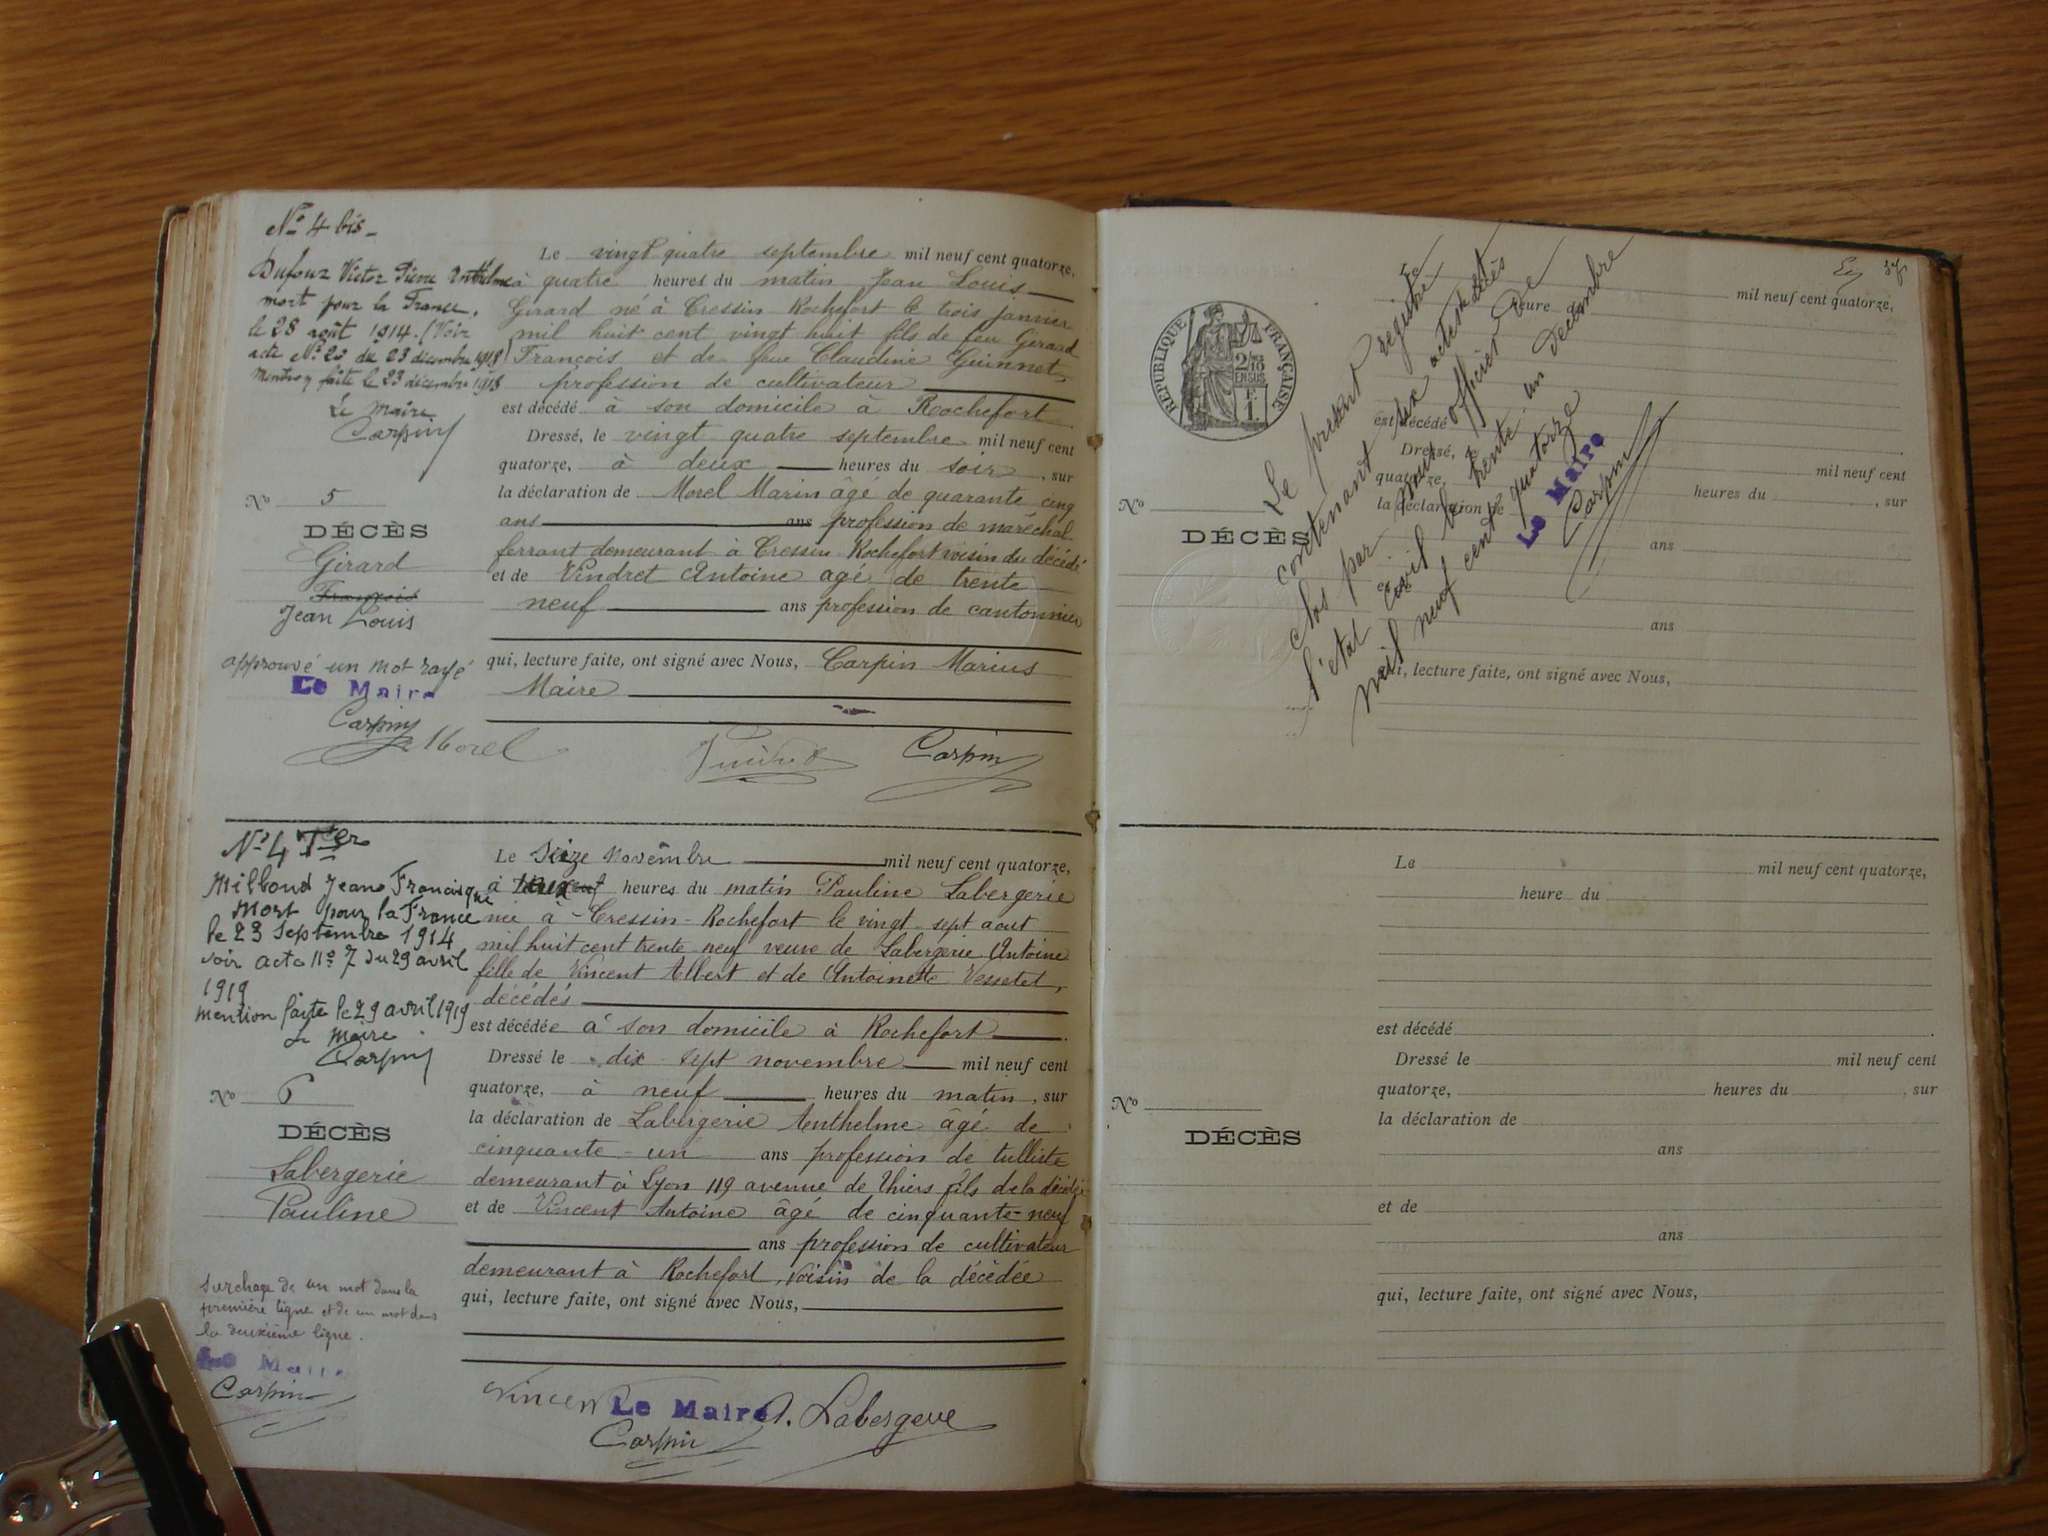 N° 4 bis
Dufour Victor Pierre Anthelme
mort pour la France,
le 28 août 1914. (Voir
acte N° 23 du 23 décembre 1918
Mention faite le 23 décembre 1918
Le Maire
Carpin
N° 5
DÉCÈS
Girard
François
Jean Louis
approuvé un mot rayé
Le Maire
Carpin
Le vingt quatre septembre mil neuf cent quatorze,
à quatre heures du matin Jean Louis
Girard né à Cressin Rochefort le trois janvier
mil huit cent vingt huit fils de feu Girard
François et de feue Claudine Guinnet,
profession de cultivateur
est décédé à son domicile à Roochefort
Dressé, le vingt quatre septembre mil neuf cent
quatorze, à deux heures du soir, sur
la déclaration de Morel Marin âgé de quarante cinq
ans ans profession de maréchal
ferrant demeurant à Cressin Rochefort voisin du décédé
et de Vindret Antoine agé de trente
neuf ans profession de cantonnier
qui, lecture faite, ont signé avec Nous, Carpin Marius
Maire
Morel Carpin
N° 4 Ter
Milloud Jean Francisque
Mort pour la France
le 23 Septembre 1914
voir acte n° 7 du 29 avril
1919
mention faite le 29 avril 1919
Le Maire
Carpin
N° 6
DÉCÈS
Labergerie
Pauline
Surchage de un mot dans la
première ligne et de un mot dans
la deuxième ligne.
Le Maire
Carpin
Le Seize Novembre mil neuf cent quatorze,
à heures du matin Pauline Labergerie
née à Cressin-Rochefort le vingt-sept aout
mil huit cent trente neuf veuve de Labergerie Antoine
fille de Vincent Albert et de Antoinette Vessetet,
décédés
est décédée à son domicile à Rochefort.
Dressé le dix sept novembre mil neuf cent
quatorze, à neuf heures du matin, sur
la déclaration de Labergerie Anthelme âgé de
cinquante-un ans profession de tulliste
demeurant à Lyon 119 avenue de Thiers fils de la décédée
et de Vincent Antoine âgé de cinquante-neuf
ans profession de cultivateur
demeurant à Rochefort, voisin de la décédée
qui, lecture faite, ont signé avec Nous,
Vincent Le Maire A. Labergerie
Carpin
RÉPUBLIQUE FRANÇAISE
Le présent registre
contenant six actes de décès
clos par nous officier de
l'état civil le trente un Décembre
mil neuf cent quatorze
Le Maire
Carpin
Le mil neuf cent quatorze,
heure du
est décédé
Dressé, le mil neuf cent
quatorze, heures du , sur
N° la déclaration de
DÉCÈS
ans
et de
ans
qui, lecture faite, ont signé avec Nous,
Le mil neuf cent quatorze,
heure du
est décédé
Dressé le mil neuf cent
quatorze, heures du , sur
N° la déclaration de
DÉCÈS
ans
et de
ans
qui, lecture faite, ont signé avec Nous,